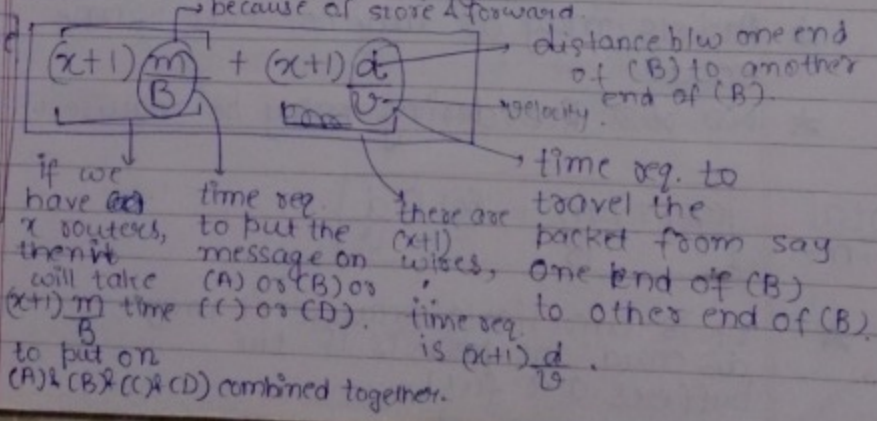 because of store & forward.
(x+1) m/B + (x+1) d/v
distance b/w one end
of (B) to another
end of (B).
velocity.
if we
have
x routers,
then it
will take
(x+1) m/B time
to put on
(A) & (B) & (C) & (D) combined together.
time req.
to put the
message on
(A) or (B) or
(C) or (D).
there are
(x+1)
wires,
time req.
is (x+1) d/v .
time req. to
travel the
packet from say
one end of (B)
to other end of (B).